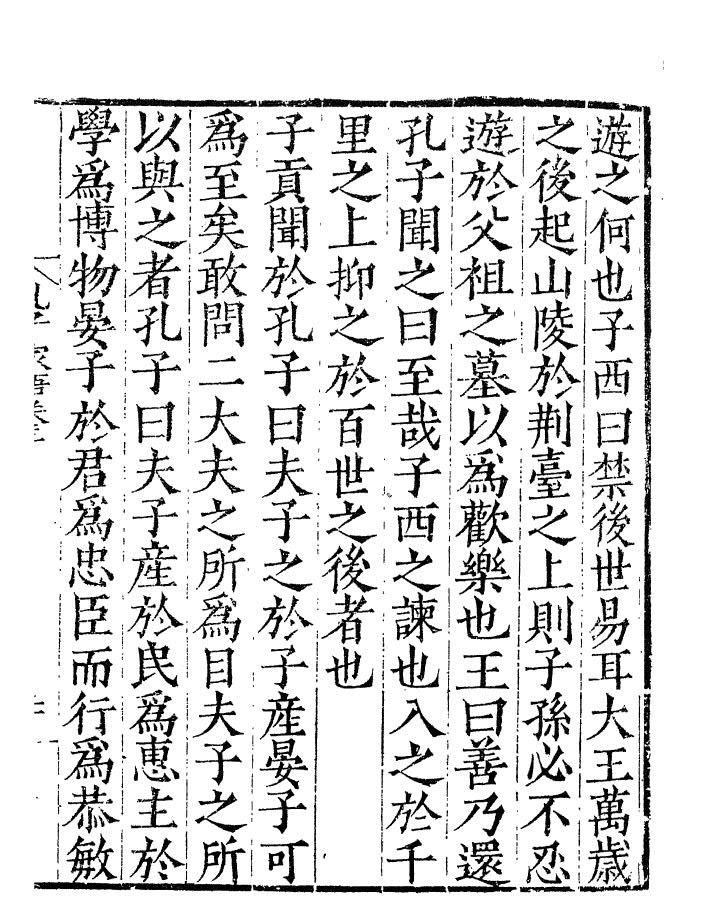 遊之何也子西曰禁後世易耳大王萬歳
之後起山陵於荆臺之上則子孫必不忍
遊於父祖之墓以爲歡樂也王曰善乃還
孔子聞之曰至哉子西之諫也入之於千
里之上抑之於百世之後者也
子貢聞於孔子曰夫子之於子產晏子可
爲至矣敢問二大夫之所爲目夫子之所
以與之者孔子曰夫子產於民爲惠主於
學爲博物晏子於君爲忠臣而行爲恭敏